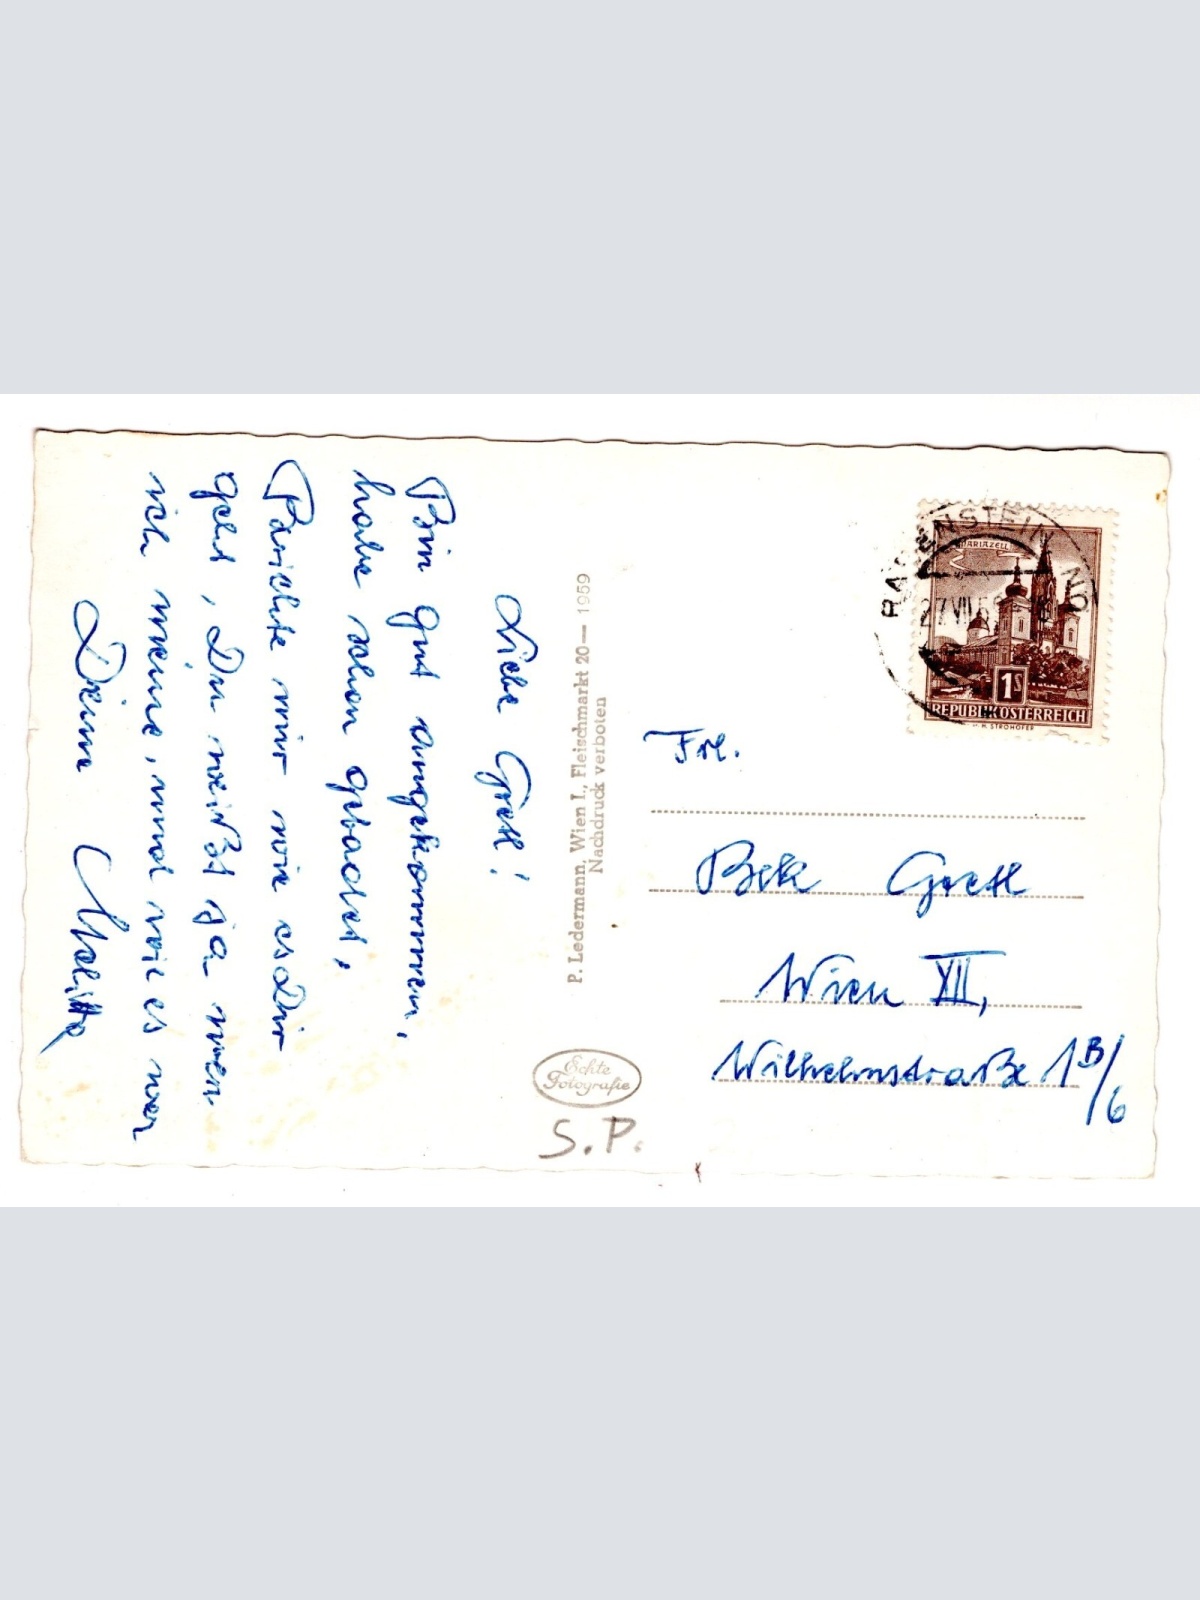 Liebe Gretl!
Bin gut angekommen,
habe schon gebadet,
Berichte mir wie es Dir
geht, Du weißt ja wen
ich meine, und wie es war
Deine Melitta
P. Ledermann, Wien I., Fleischmarkt 20— 1959
Nachdruck verboten
Echte
Fotografie
S.P.
RAPPENSTEIN NÖ
27.VII.
MARIAZELL
1S
REPUBLIK ÖSTERREICH
H. STROHOFER
Frl.
Bek Gretl
Wien XII,
Wilhelmstraße 1B/6